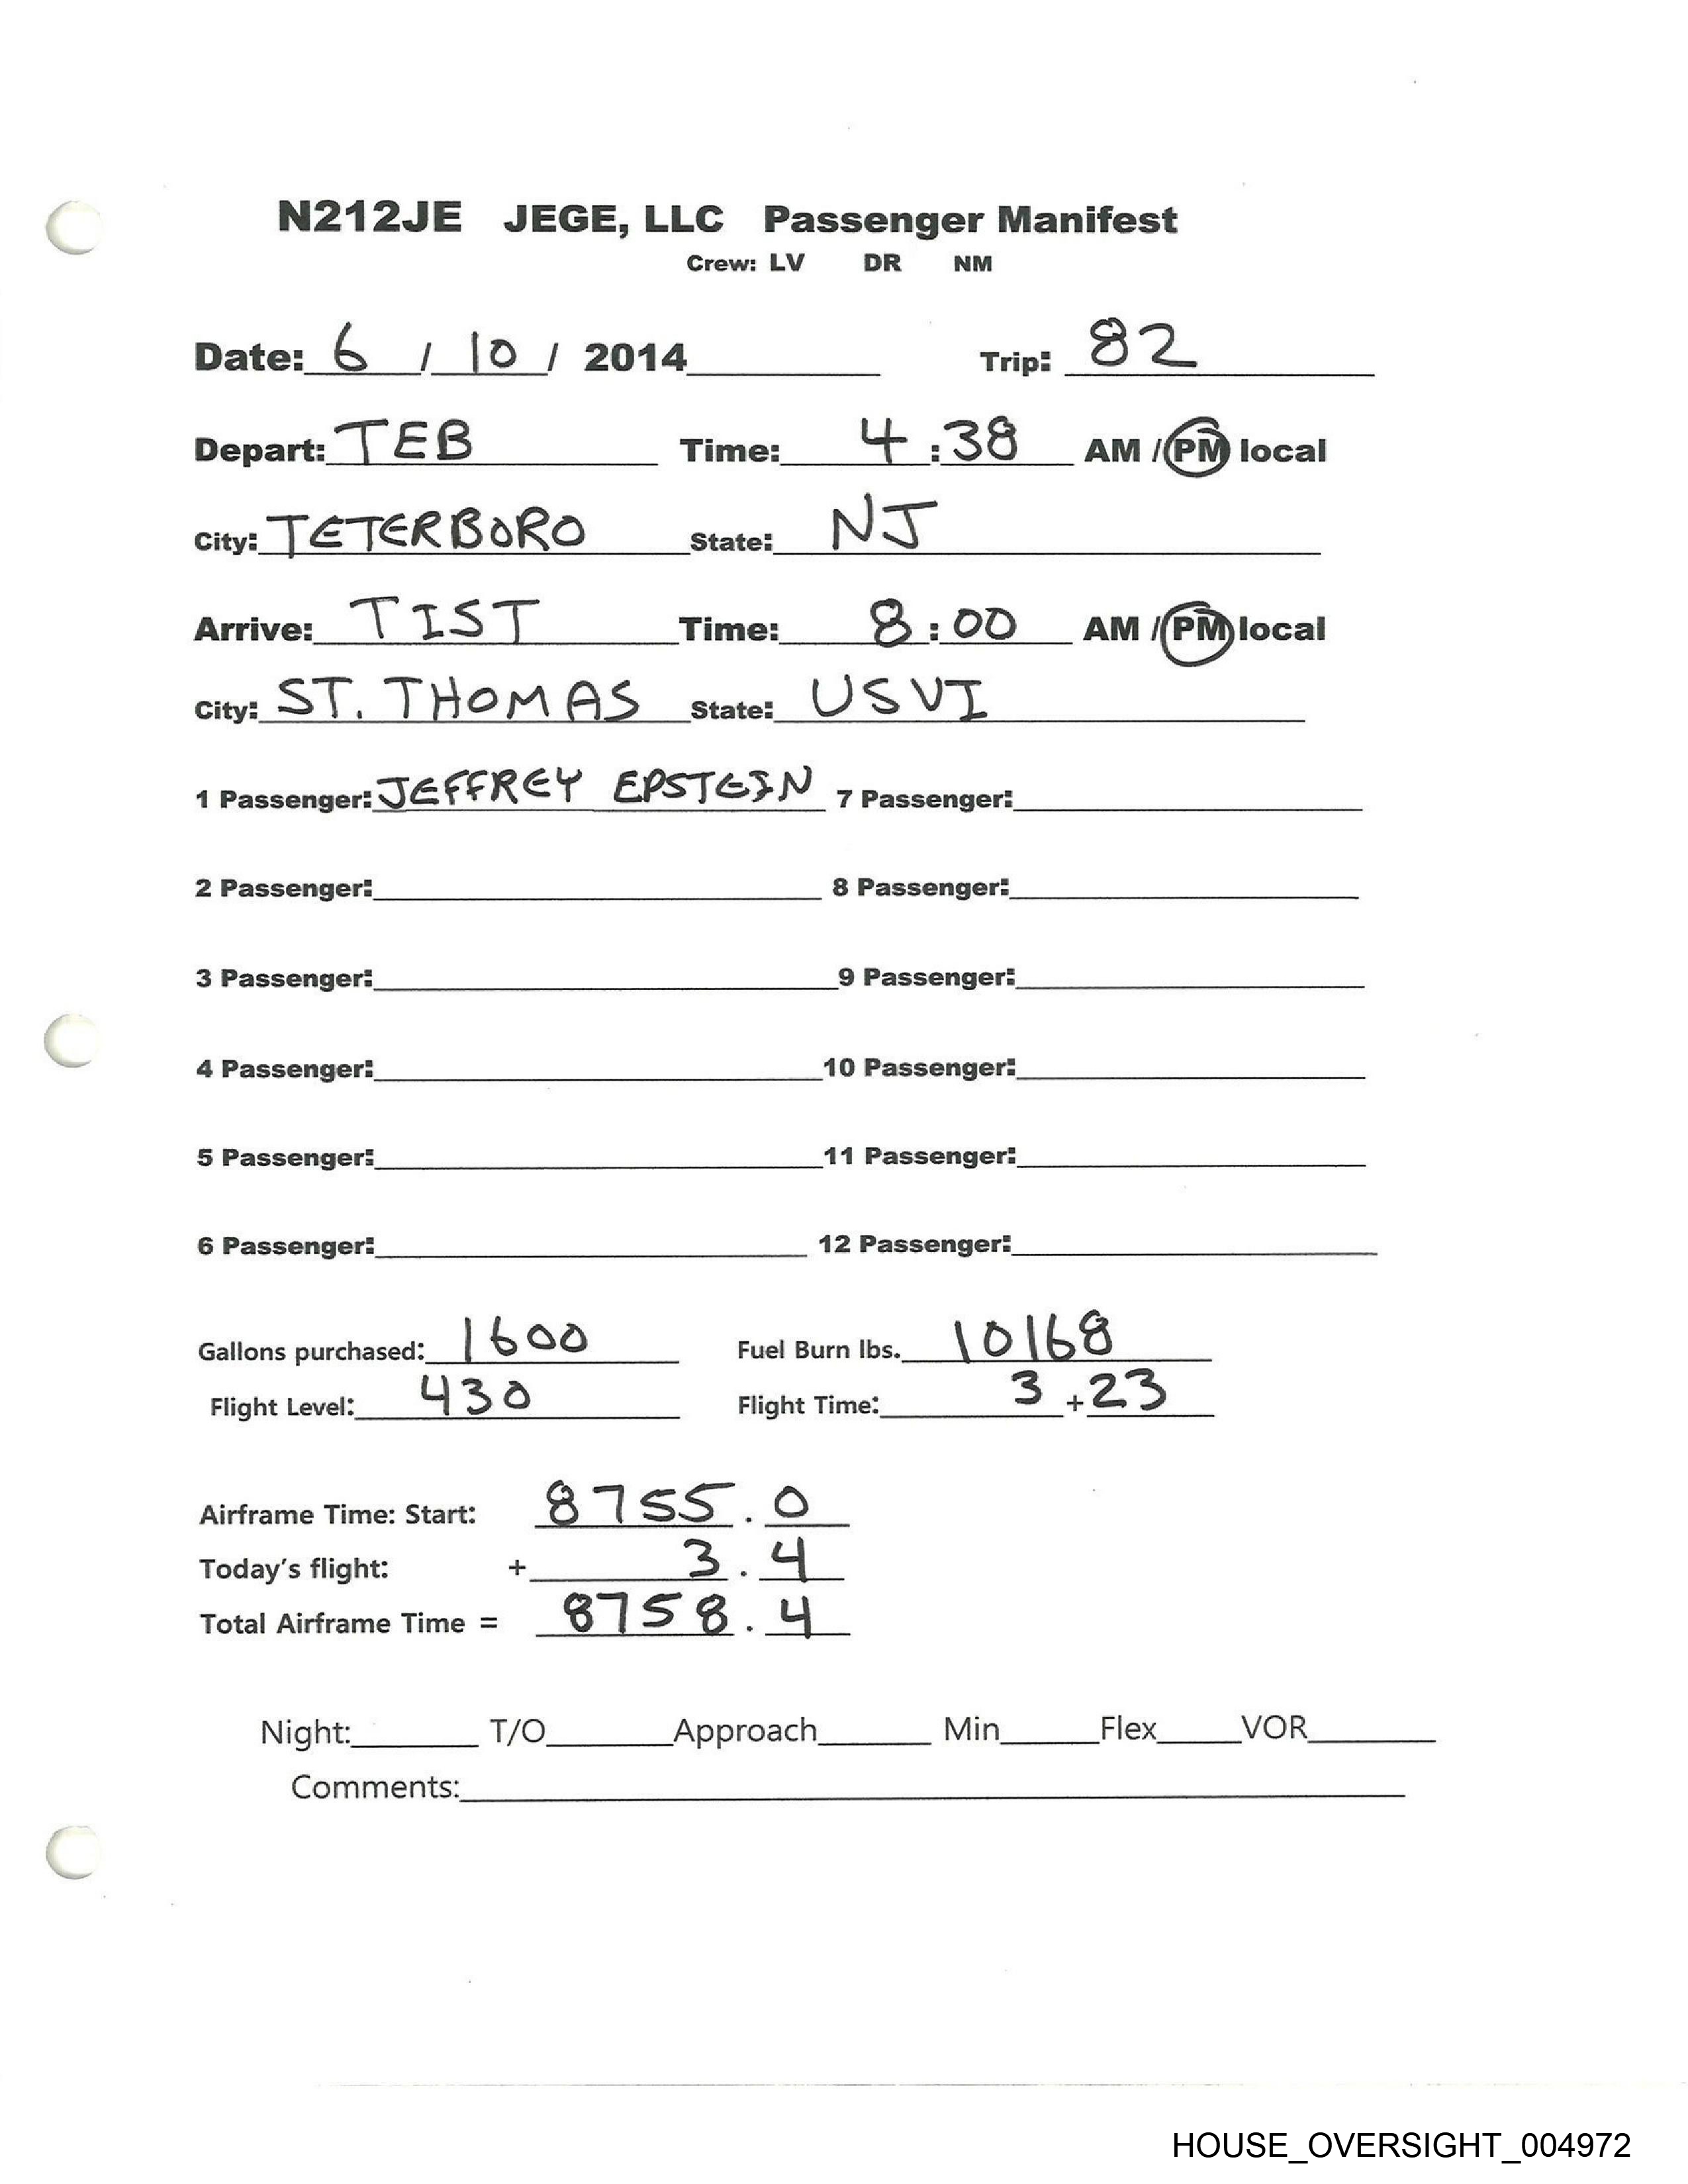 N212JE JEGE, LLC Passenger Manifest
Crew: LV DR NM
Date: 6 / 10 / 2014 Trip: 82
Depart: TEB Time: 4:38 AM / PM local
City: TETERBORO State: NJ
Arrive: TIST Time: 8:00 AM / PM local
City: ST. THOMAS State: USVI
1 Passenger: JEFFREY EPSTEIN 7 Passenger:
2 Passenger: 8 Passenger:
3 Passenger: 9 Passenger:
4 Passenger: 10 Passenger:
5 Passenger: 11 Passenger:
6 Passenger: 12 Passenger:
Gallons purchased: 1600 Fuel Burn lbs. 10168
Flight Level: 430 Flight Time: 3 + 23
Airframe Time: Start: 8755.0
Today's flight: + 3.4
Total Airframe Time = 8758.4
Night: T/O Approach Min Flex VOR
Comments:
HOUSE_OVERSIGHT_004972